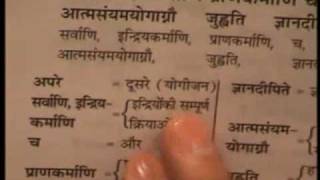 आत्मसंयमयोगाग्नौ जुह्वति ज्ञानदीपिते
सर्वाणि, इन्द्रियकर्माणि, प्राणकर्माणि, च,
आत्मसंयमयोगाग्नौ, जुह्वति,
अपरे = दूसरे (योगीजन) ज्ञानदीपिते =
सर्वाणि, इन्द्रिय- इन्द्रियोंकी सम्पूर्ण
कर्माणि = आत्मसंयम-
च = और योगाग्नौ
प्राणकर्माणि =